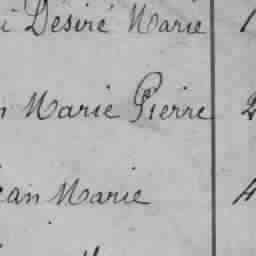 Désiré Marie 1
Marie Pierre 2
ean Marie 4